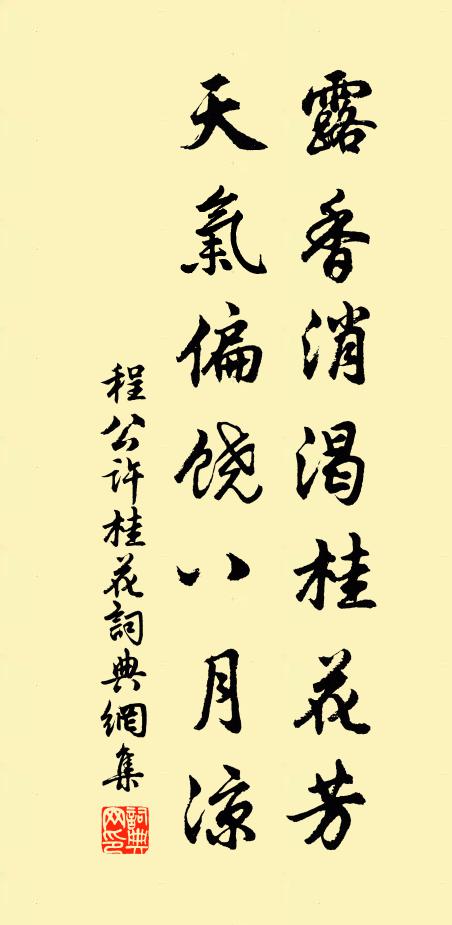 露香消渴桂花芳
天氣偏饶八月凉
程公许桂花詞典網集
詞典網印